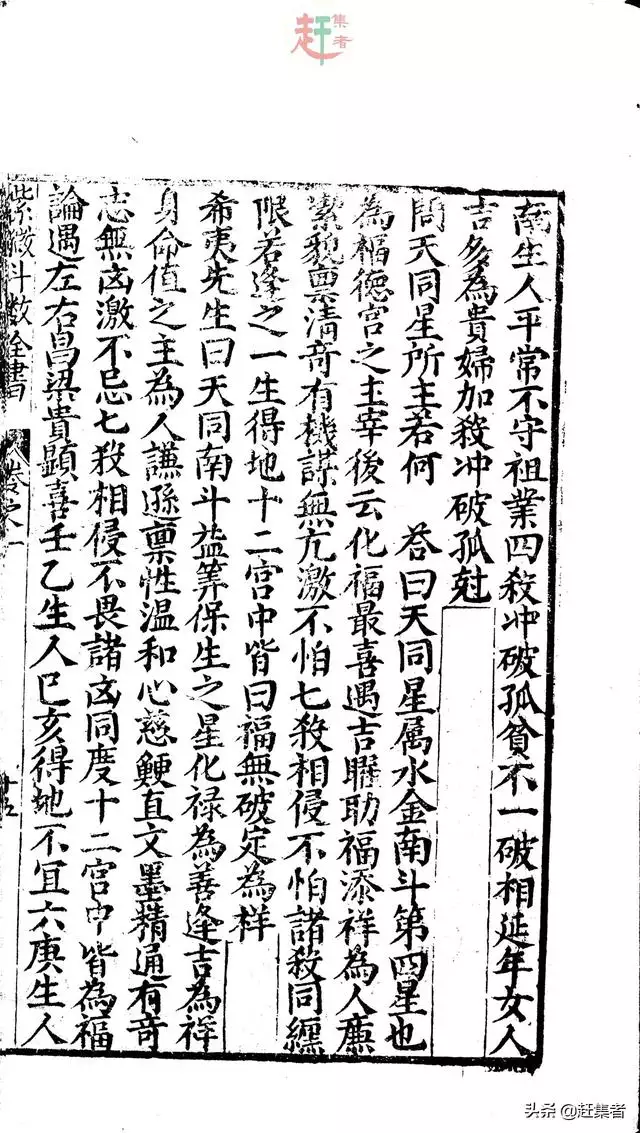 赶集者
南生人平常不守祖業四殺冲破孤貧不一破相延年女人
吉多為貴婦加殺冲破孤尅
問天同星所主若何　荅曰天同星属水金南斗第四星也
為福德宮之主宰後云化福最喜遇吉曜助福添祥為人廉
潔貌禀清竒有機謀無亢激不怕七殺相侵不怕諸殺同纏
限若逢之一生得地十二宮中皆曰福無破定為祥
希夷先生曰天同南斗益筭保生之星化禄為善逢吉為祥
身命值之主為人謙遜禀性温和心慈鯁直文墨精通有竒
志無㐫激不忌七殺相侵不畏諸㐫同度十二宮中皆為福
論遇左右昌梁貴顕喜壬乙生人巳亥得地不宜六庚生人
紫微斗数全書　卷之一　十五
头条 @赶集者